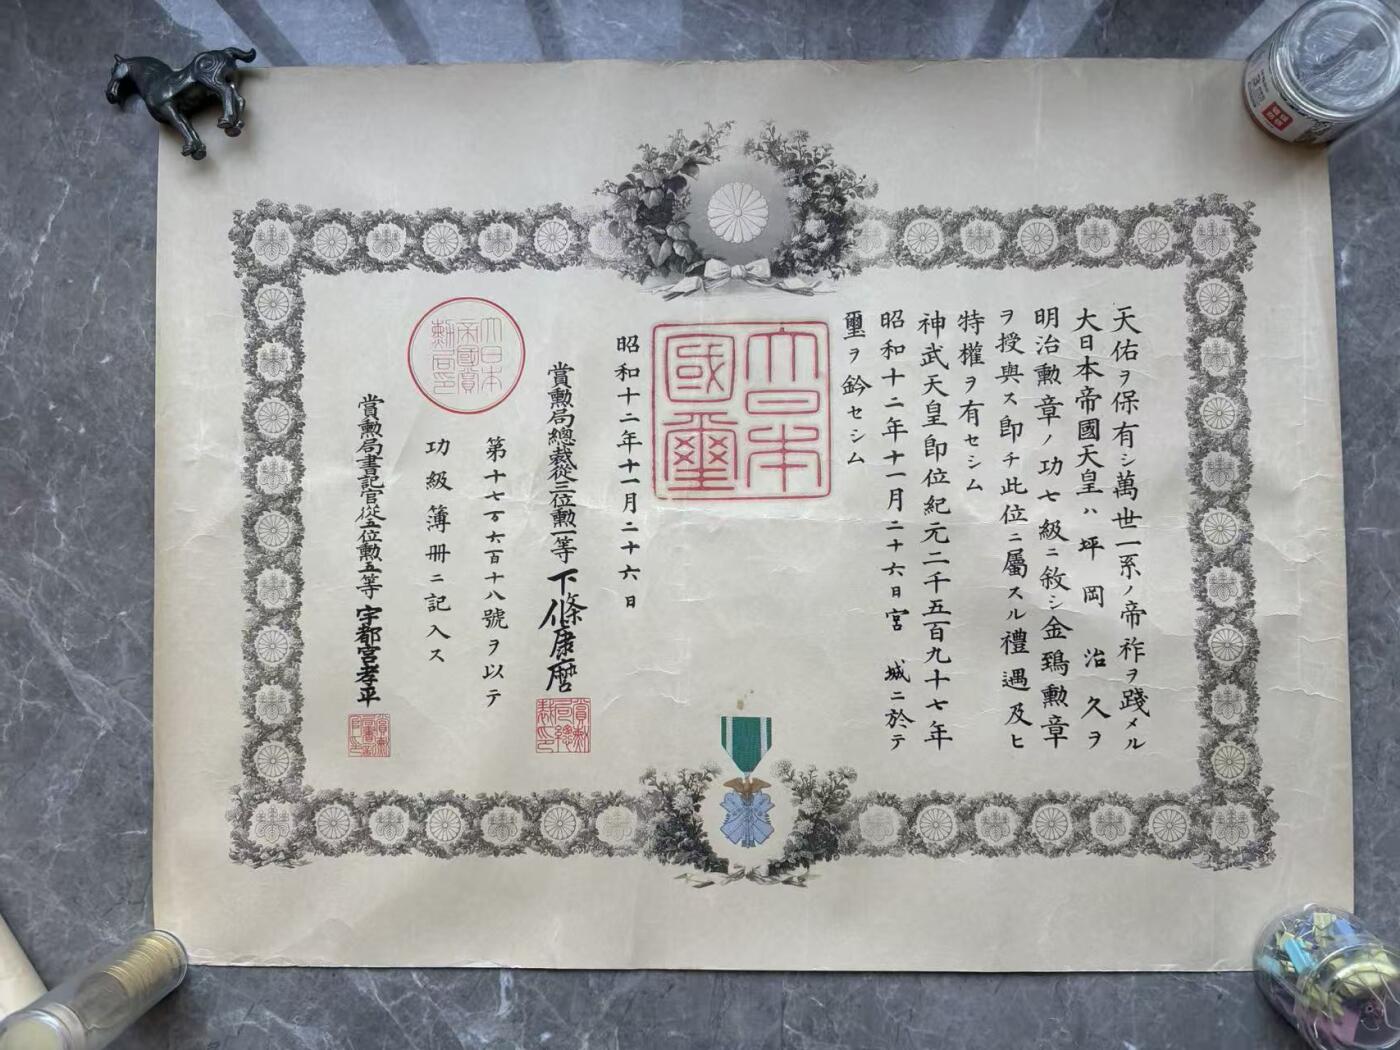 天佑ヲ保有シ萬世一系ノ帝祚ヲ踐メル
大日本帝國天皇ハ坪岡治久ヲ
明治勲章ノ功七級ニ敘シ金鵄勲章
ヲ授與ス即チ此位ニ屬スル禮遇及ヒ
特權ヲ有セシム
神武天皇即位紀元二千五百九十七年
昭和十二年十一月二十六日宮城ニ於テ
璽ヲ鈐セシム
大日本
國璽
昭和十二年十一月二十六日
賞勲局總裁從三位勲一等下條康麿
賞勲局總裁印
第十七万六百十八號ヲ以テ
功級簿冊ニ記入ス
大日本
帝國賞
勲局印
賞勲局書記官從五位勲五等宇都宮孝平